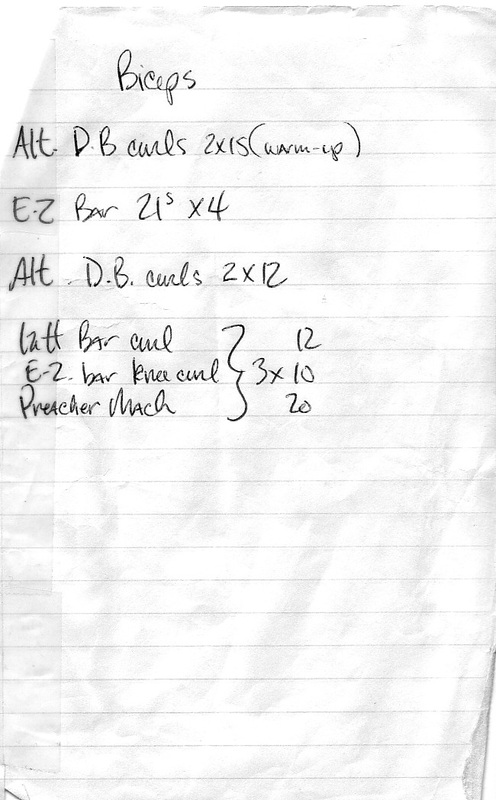 Biceps
Alt. D.B curls 2x15 (warm-up)
E-Z Bar 21s x4
Alt. D.B. curls 2x12
Latt Bar curl } 12
E-Z. bar knee curl } 3x 10
Preacher Mach } 20